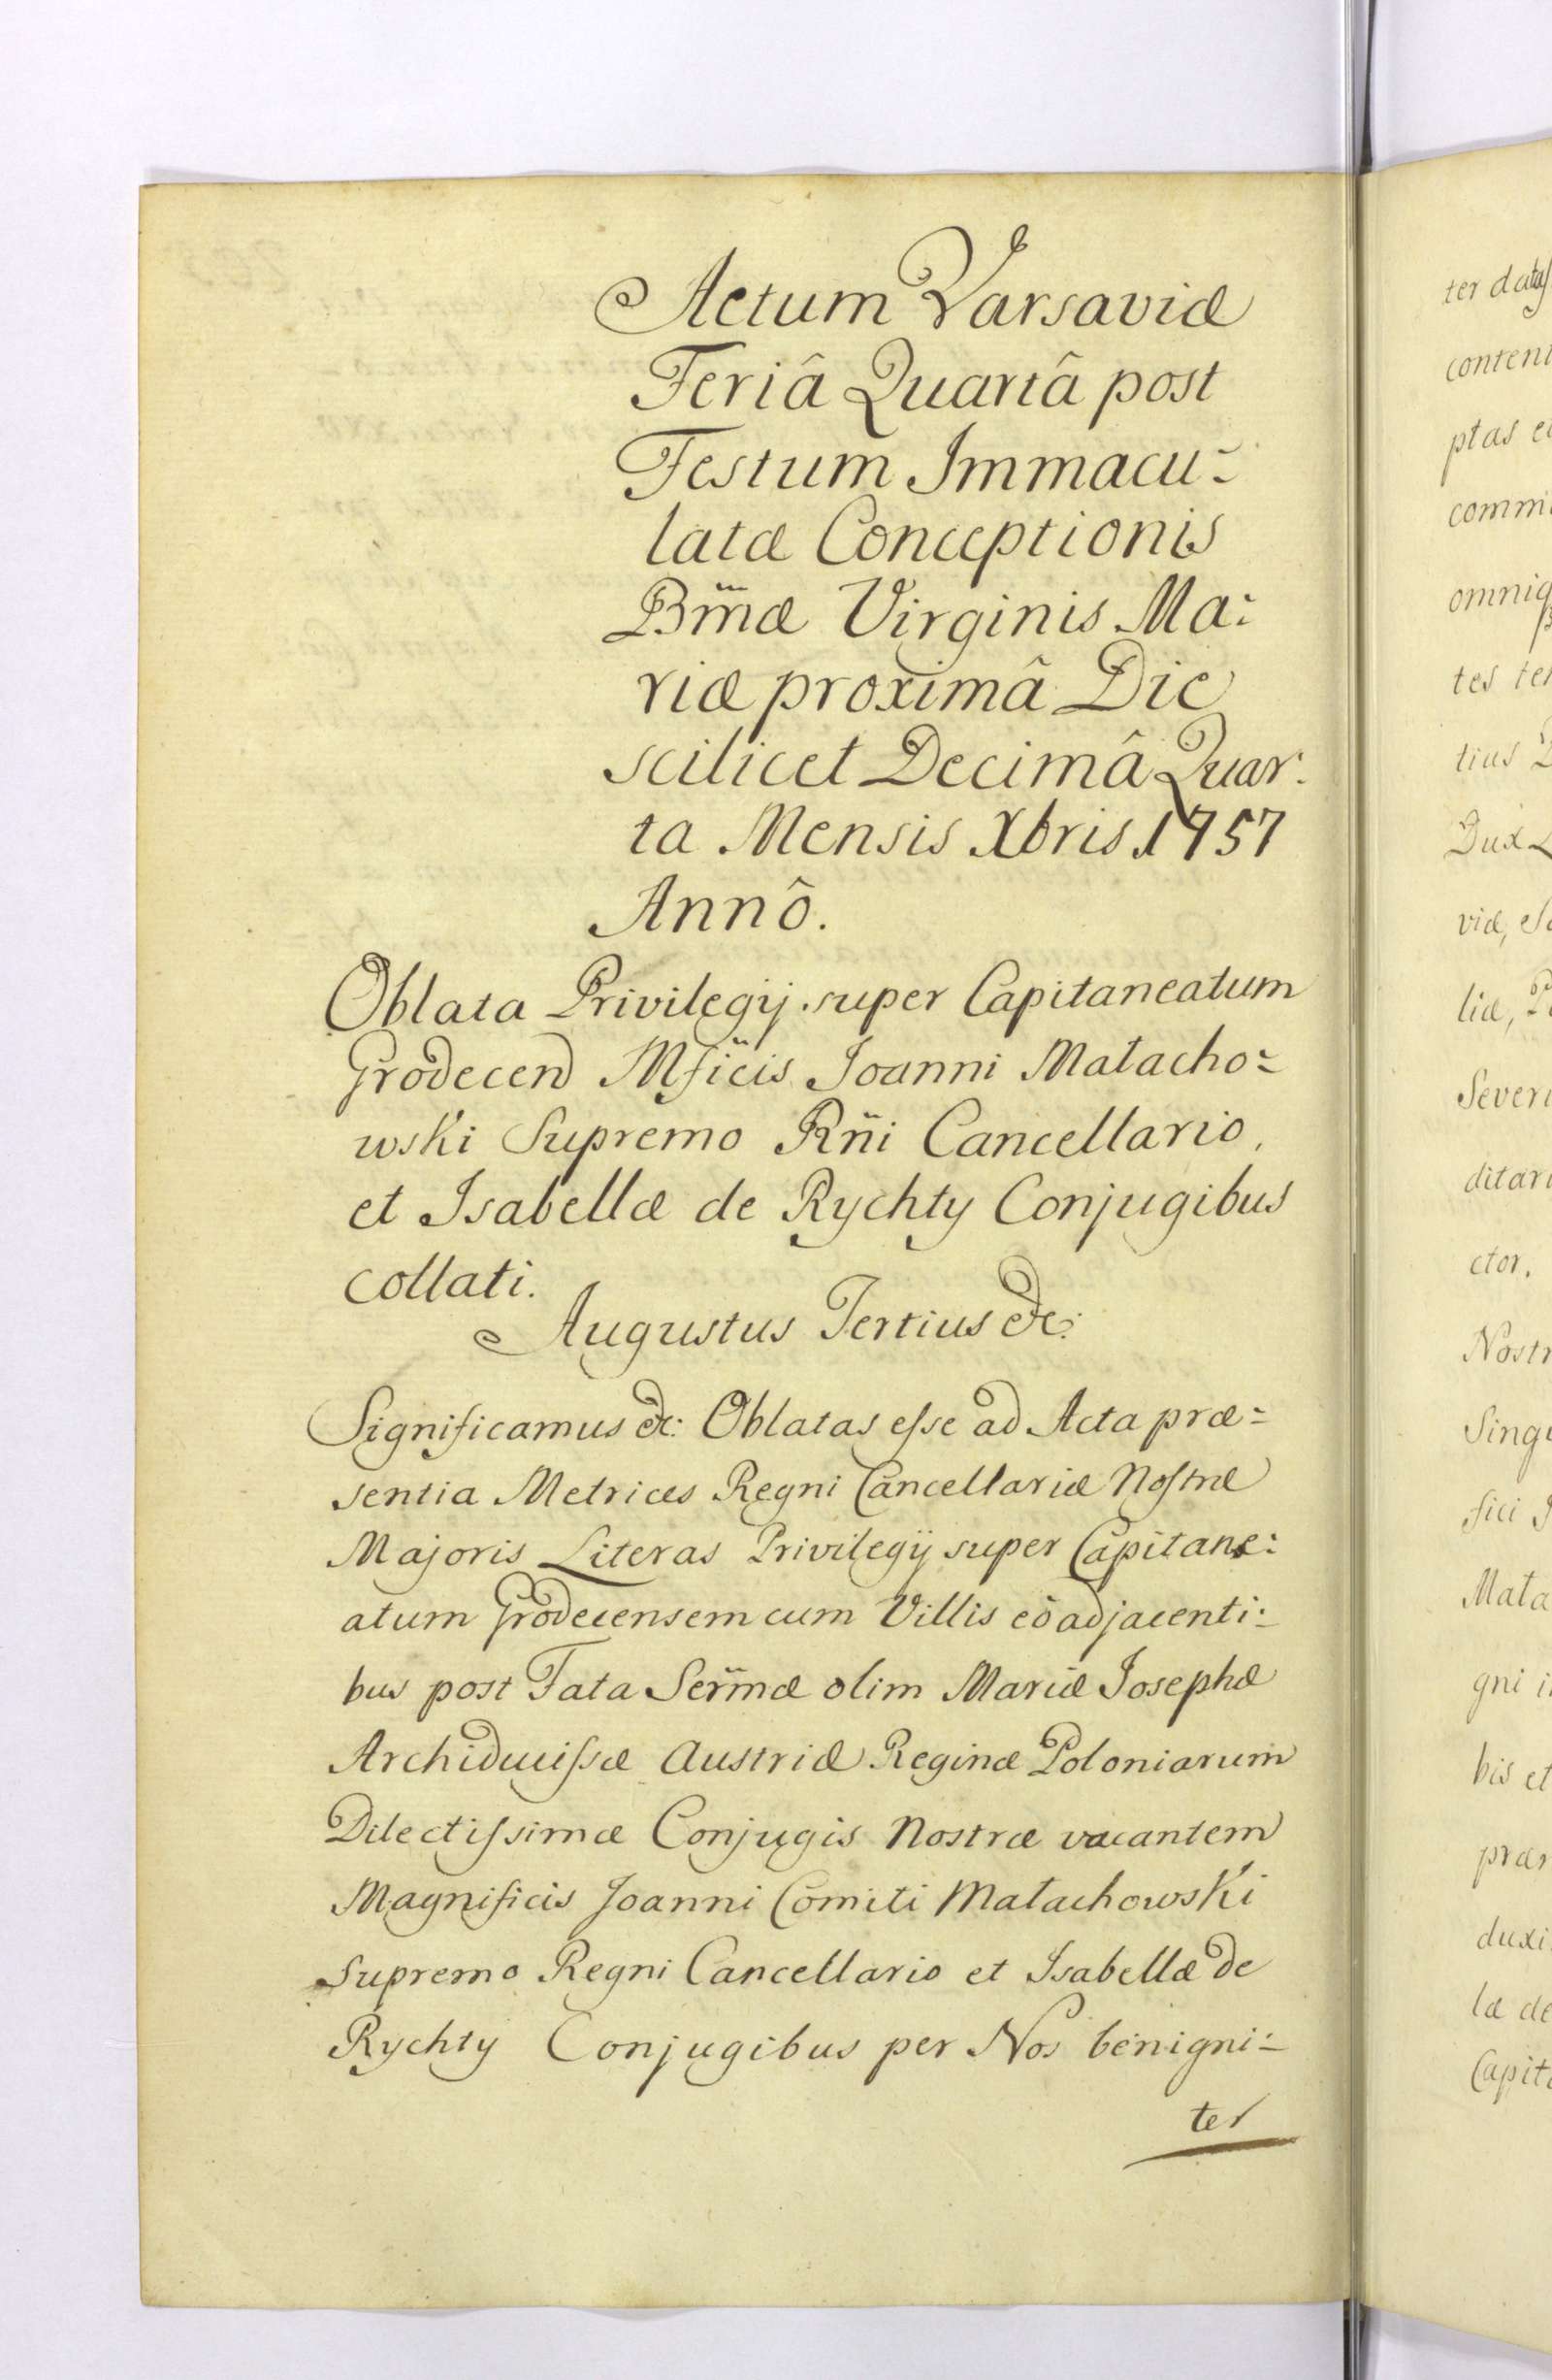 Actum Varsaviæ
Feriâ Quartâ post
Festum Immacu=
latæ Conceptionis
Bm̃æ Virginis Ma=
riæ proximâ Die
scilicet Decimâ Quar=
ta Mensis Xbris 1757
Annô.
Oblata Privilegij super Capitaneatum
Grodecen Mficis Joanni Małacho=
wski Supremo Rñi Cancellario,
et Isabellæ de Rychty Conjugibus
collati.
Augustus Tertius &c:
Significamus &c: Oblatas esse ad Acta præ=
sentia Metrices Regni Cancellariæ Nostræ
Majoris Literas Privilegij super Capitane=
atum Grodecensem cum Villis eò adjacenti=
bus post Fata Serm̃æ olim Mariæ Josephæ
Archiducissæ Austriæ Reginæ Poloniarum
Dilectissimæ Conjugis Nostræ vacantem
Magnificis Joanni Comiti Małachowski
Supremo Regni Cancellario et Isabellæ de
Rychty Conjugibus per Nos benigni=
ter
ter datas
content
ptas
comm
omniq
tes
tius
Dux
viæ,
liæ,
Severi
ditari
ctor.
Nostr
Singu
fici
Mała
gni
bis et
præ
duxi
læ de
Capit